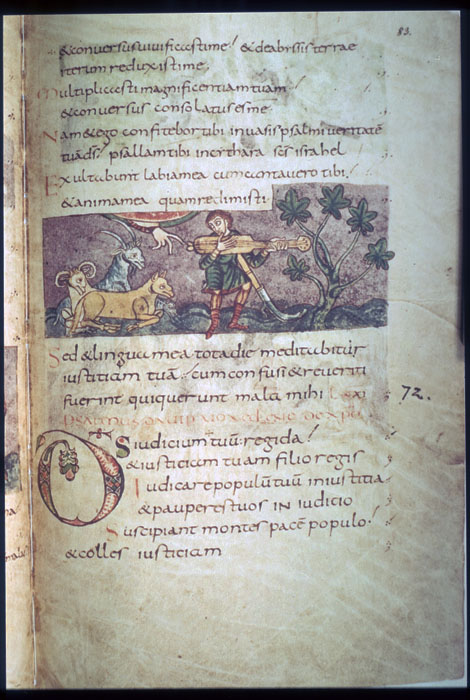 83.
& conversus vivificasti me / & de abissis terrae
iterum reduxisti me
Multiplicasti magnificentiam tuam
& conversus consolatus es me
Nam & ego confitebor tibi in vasis psalmi veritatē
tuā ds psallam tibi in cithara scs israhel
Exultabunt labia mea cum cantavero tibi /
& anima mea quam redimisti
Sed & lingua mea tota die meditabitur
iustitiam tuā cum confusi & reveriti
fuerint qui querunt mala mihi
72.
Ds iudicium tuū regi da /
& iusticiam tuam filio regis
Iudicare populū tuū in iustitia
& pauperes tuos in iudicio
Suscipiant montes pacē populo /
& colles iusticiam